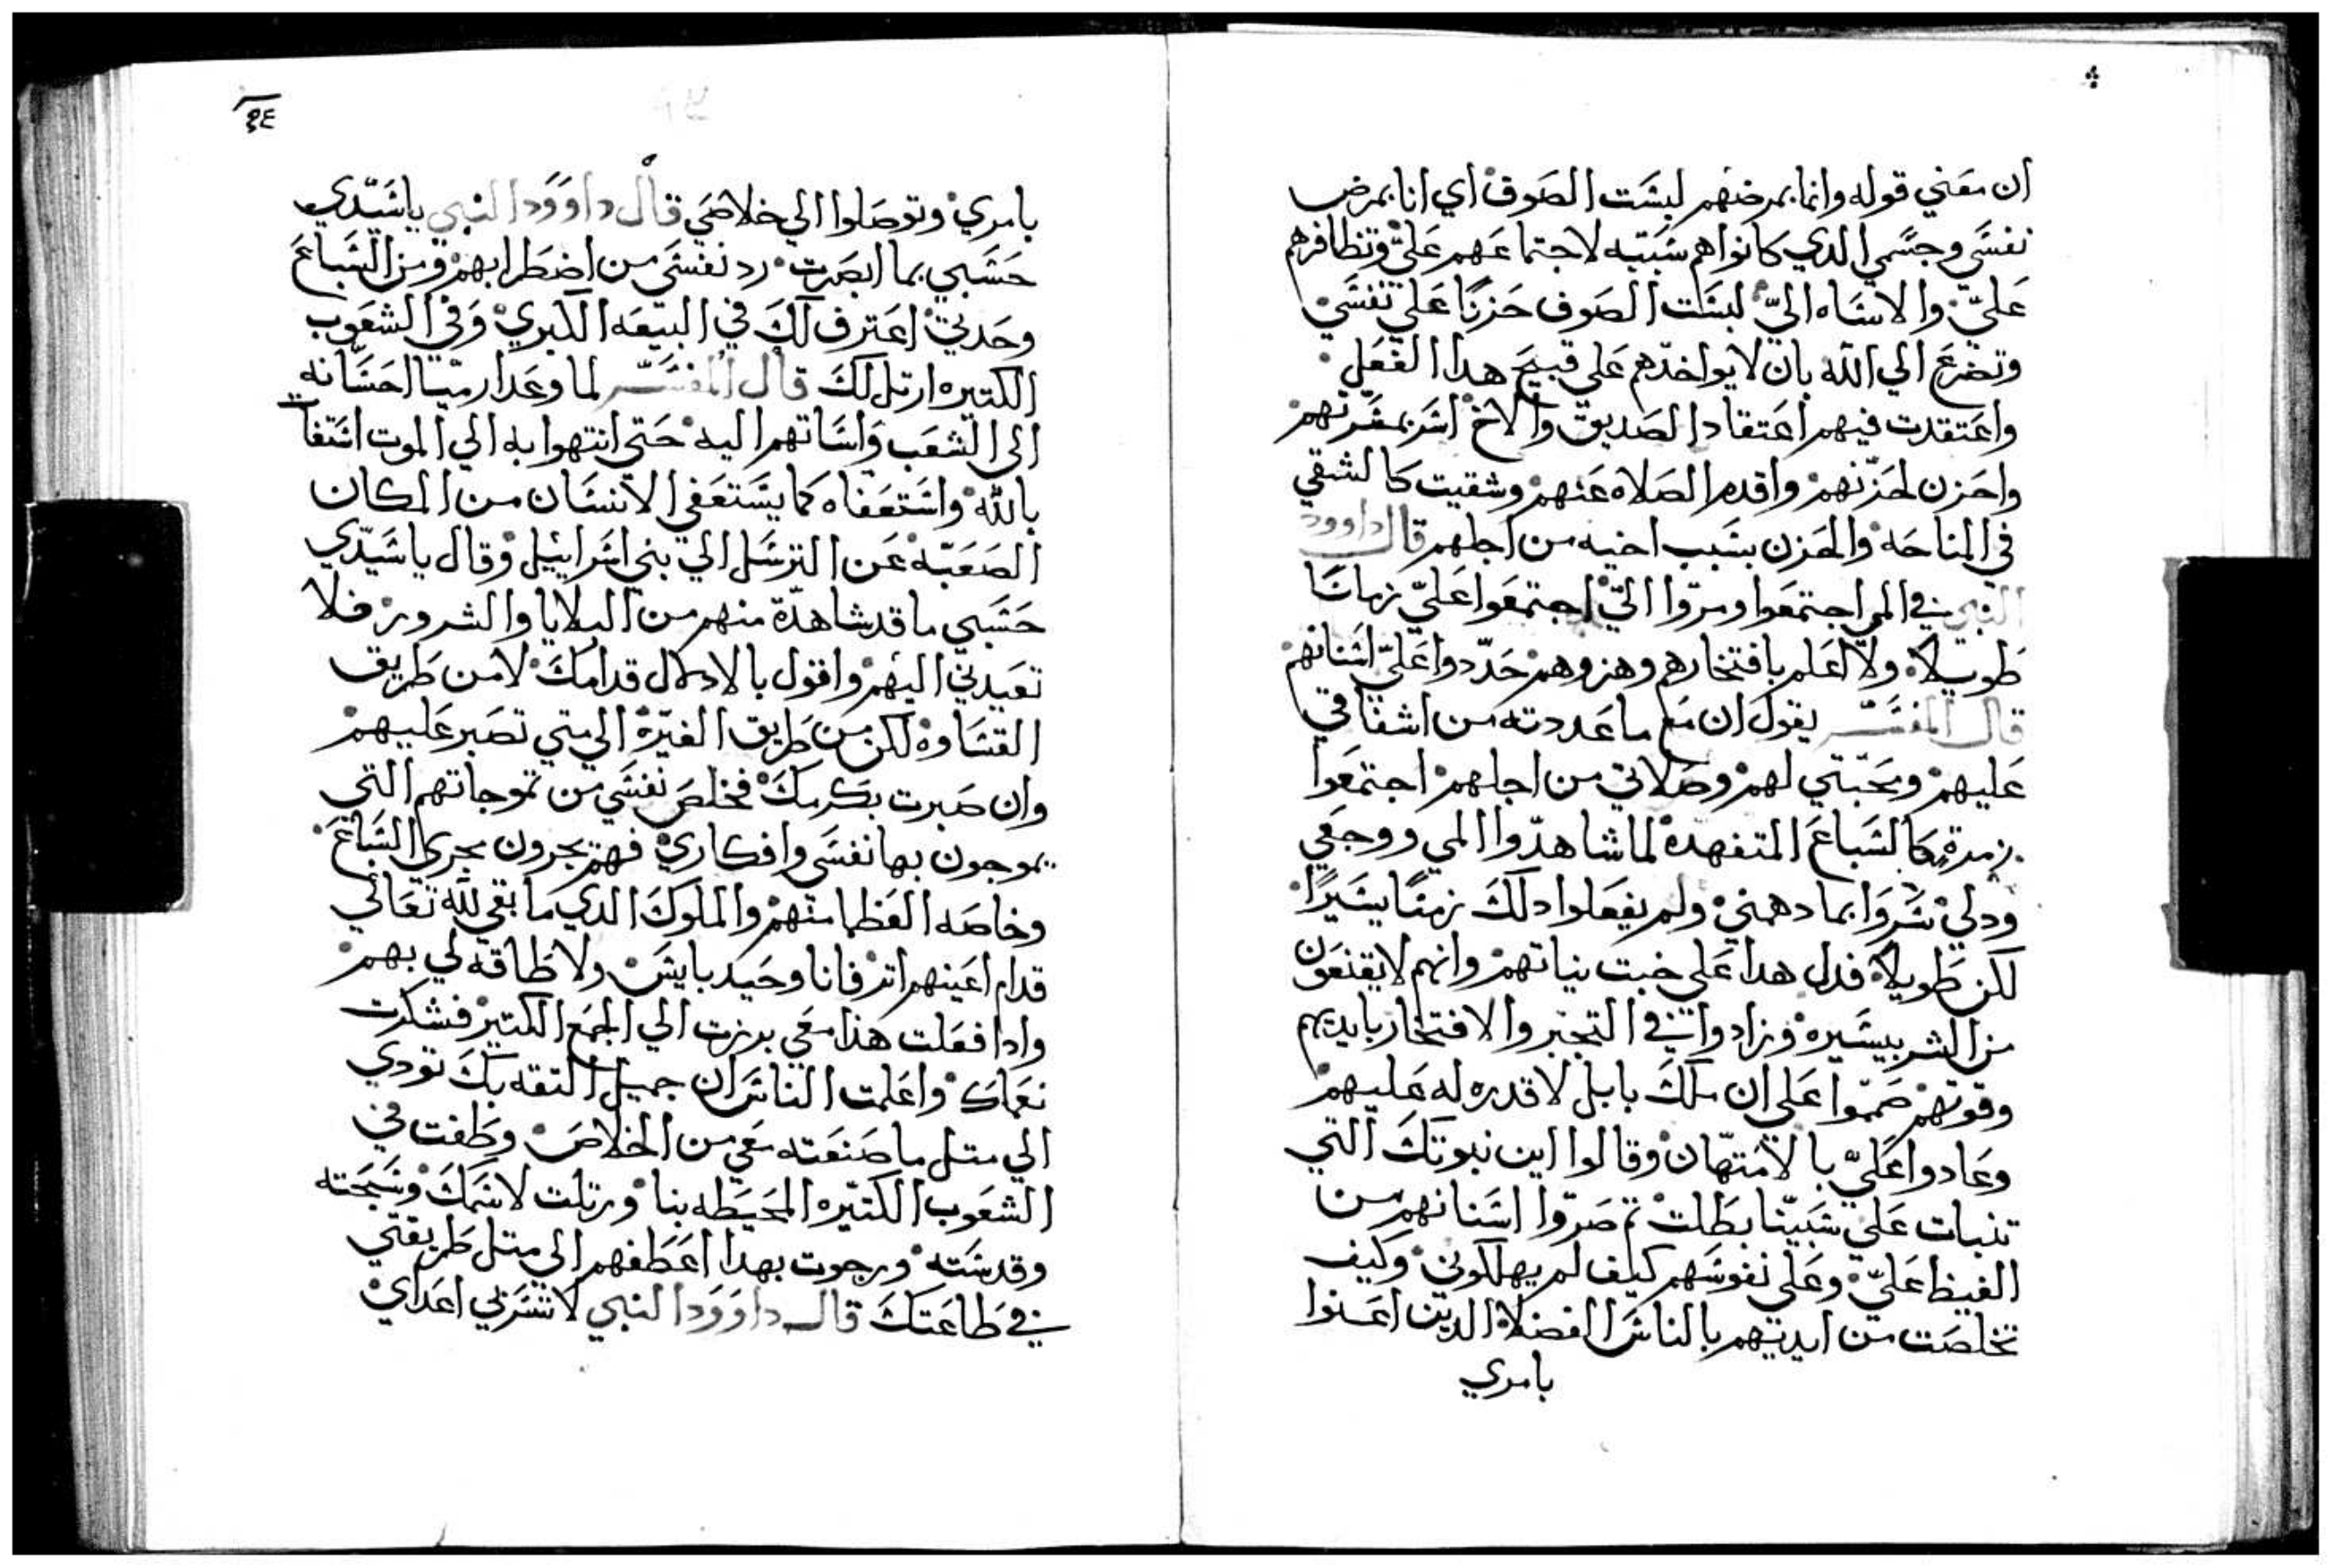 ان معني قوله وانما بمرضهم لبست الصوف اي انا بمرض
نفسي وجسمي الدي كانوا هم سببه لاجتماعهم علي وتظافرهم
علي والاساه الي لبست الصوف حزنا علي نفسي
وتضرع الي الله بان لا يواخدهم علي قبيح هدا الفعل
واعتقدت فيهم اعتقاد الصديق والاخ اسر بمسرتهم
واحزن لحزنهم واقدم الصلاه عنهم وشقيت كالشقي
في المناحه والحزن بسبب اخيه من اجلهم قال داوود
النبي في المي اجتمعوا وسروا الي اجتمعوا علي زمانا
طويلا ولا اعلم بافتخارهم وهزوهم حددوا علي اسنانهم
قال المفسر يقول ان مع ما عددته من اشفاقي
عليهم ومحبتي لهم وصلاتي من اجلهم اجتمعوا
زمرة كالسباع المتفهدة لما شاهدوا المي ووجعي
ودلي سروا بما دهمني ولم يفعلوا دلك زمنا يسيرا
لكن طويلا فدل هدا علي خبت نياتهم وانهم لا يقنعون
من الشر بيسيره وزادوا في التجبر والافتخار بايديهم
وقوتهم صمموا علي ان ملك بابل لا قدره له عليهم
وعادوا علي بالامتهان وقالوا اين نبوتك التي
تنبات علي سبينا بطلت تم صروا اسنانهم من
الغيظ علي وعلي نفوسهم كيف لم يهلكوني وكيف
تخلصت من ايديهم بالناس الفضلا الدين اعتنوا
بامري
٩٤
بامري وتوصلوا الي خلاصي قال داوود النبي ياسيدي
حسبي بما ابصرت رد نفسي من اضطرابهم ومن السباع
وحدتي اعترف لك في البيعه الكبري وفي الشعوب
الكتيره ارتل لك قال المفسر لما وعد ارميا احسانه
الي الشعب واساتهم اليه حتي انتهوا به الي الموت استغا
بالله واستعفاه كما يستعفي الانسان من المكان
الصعبه عن الترسل الي بني اسراييل وقال ياسيدي
حسبي ما قد شاهدة منهم من البلايا والشرور فلا
تعيدني اليهم واقول بالادلال قدامك لا من طريق
القساوه لكن من طريق الغيرة الي متي تصبر عليهم
وان صبرت بكرمك فخلص نفسي من تموجاتهم التي
يموجون بها نفسي وافكاري فهم يجرون مجري السباع
وخاصه العظما منهم والملوك الدي ما بقي لله تعالي
قدام اعينهم اتر فانا وحيد بايس ولا طاقه لي بهم
وادا فعلت هذا معي برزت الي الجمع الكتير فشكرت
نعماك واعلمت الناس ان جميل التقه بك تودي
الي متل ما صنعته معي من الخلاص وطفت في
الشعوب الكتيره المحيطه بنا ورتلت لاسمك وسبحته
وقدسته ورجوت بهدا اعطفهم الي متل طريقتي
في طاعتك قال داوود النبي لا تسر بي اعداي